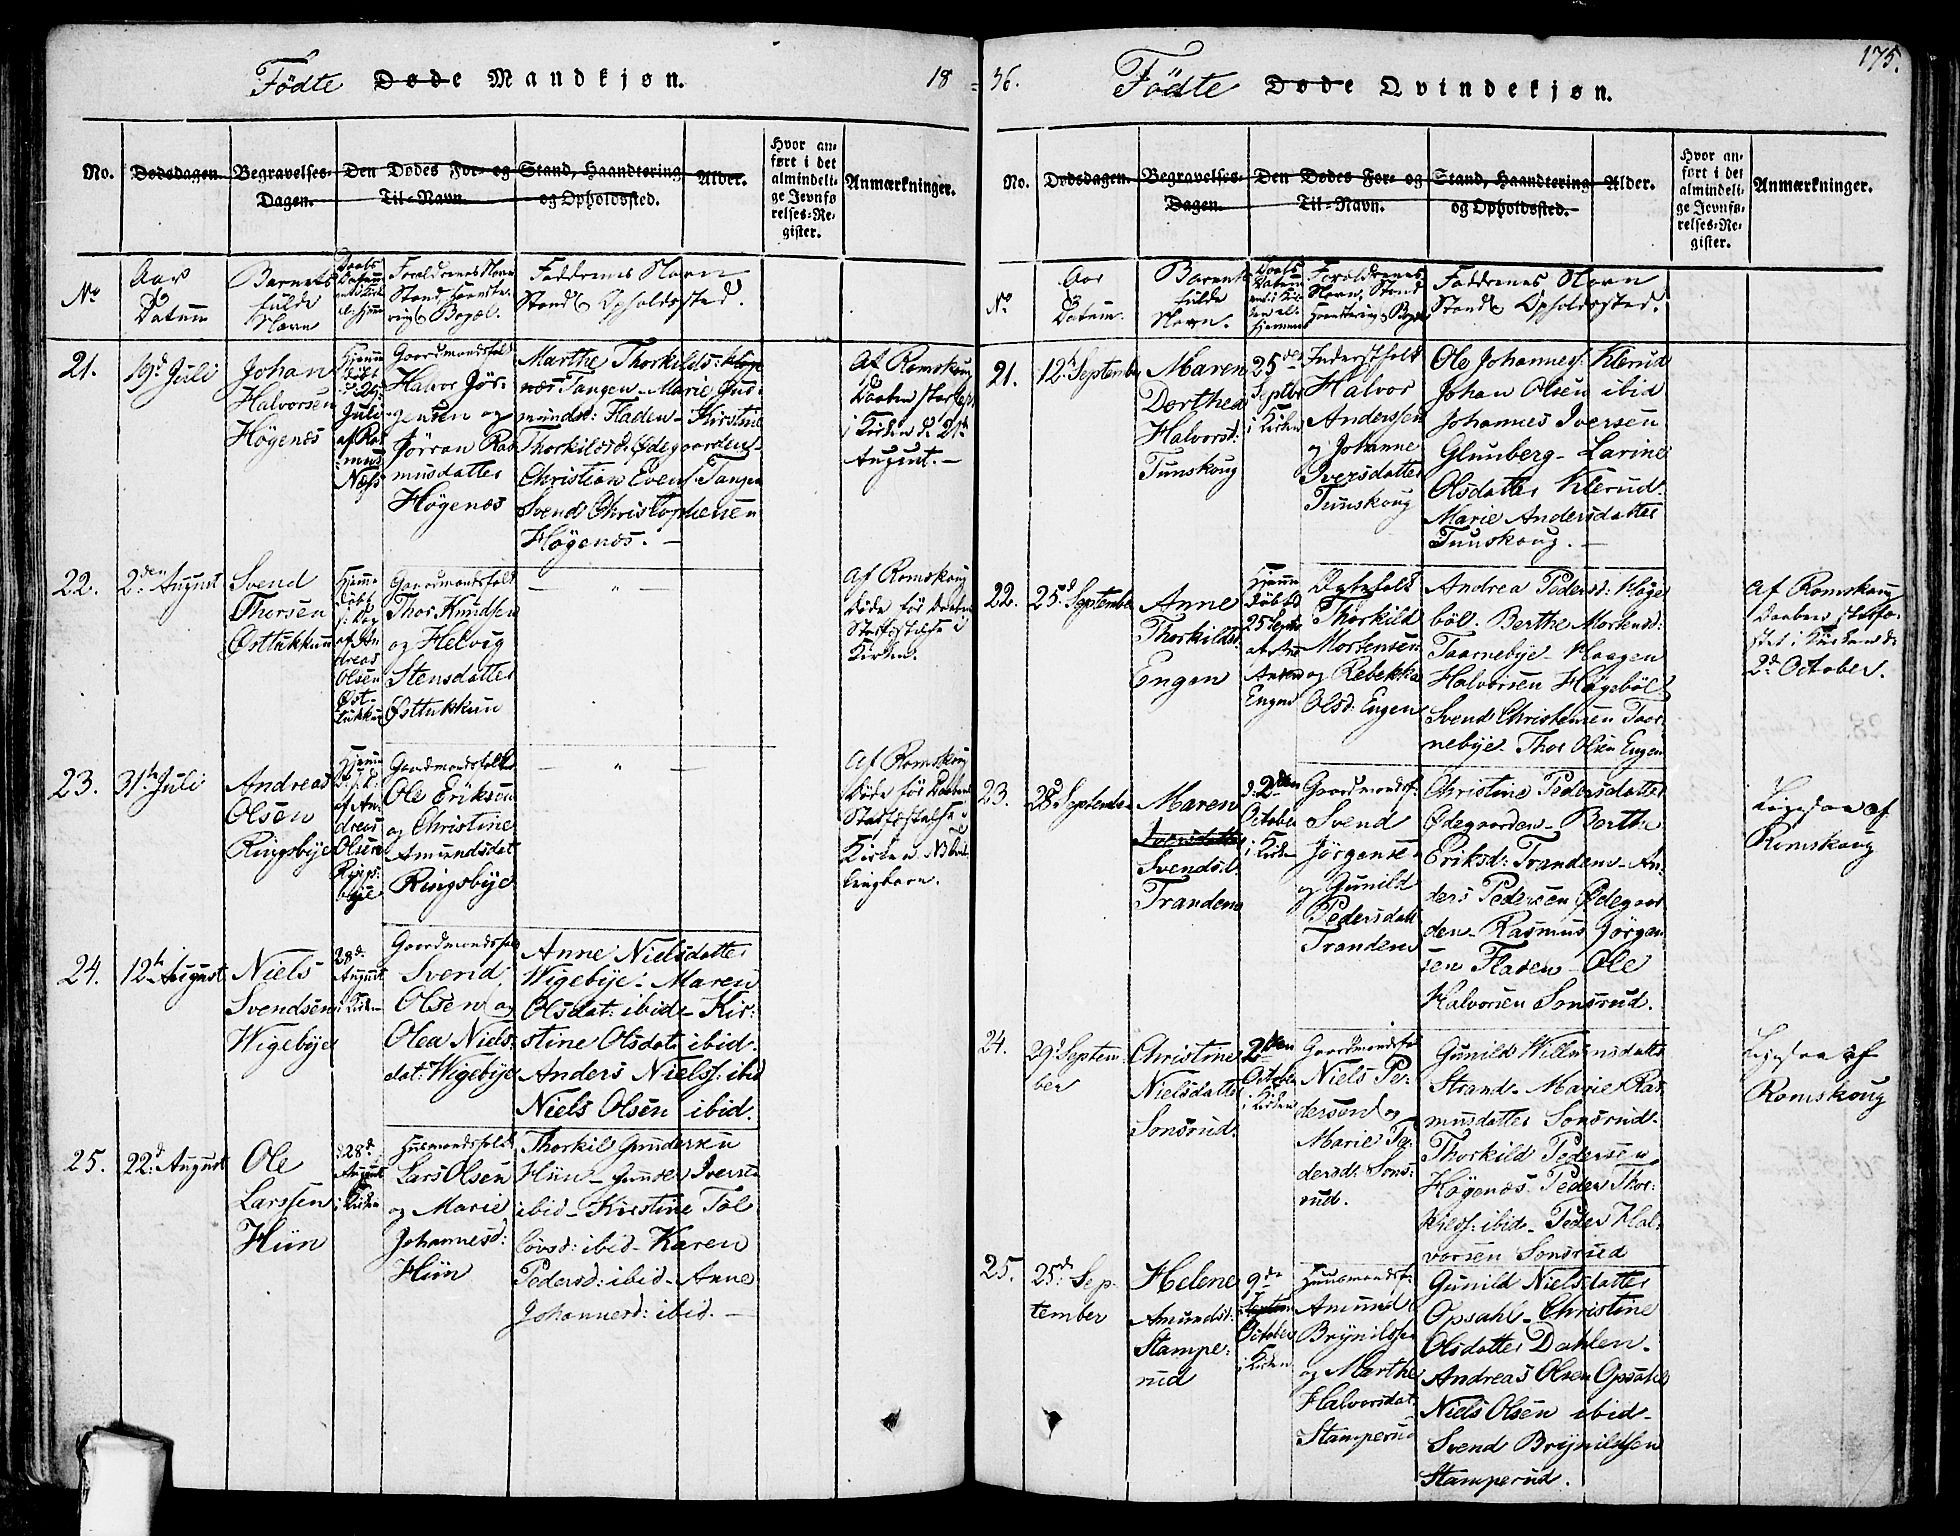 Fødte Døde Mandkjøn. 18
No. Dødsdagen. Begravelses-Dagen. Den Dødes For- og Til-Navn. Stand, Haandtering og Opholdssted. Alder. Hvor anført i det almindelige Jevnførelses-Register. Anmærkninger.
No Aar & Datum Barnets fulde Navn Daabs Datum Forældrenes Navn Stand Haandtering & Bopæl. Faddrenes Navn Stand & Opholdssted.
21.
19d Juli
Johan
Halvorsen
Høgenæs
Hjemme
døbt
d. 29
Juli
af Ras
mus
Næss
Gaardmandsfolk
Halvor Jør-
gensen og
Jørran Ras
musdatter
Høgenæs
Marthe Thorkilds: Høge
næs: Tangen. Marie Gud-
munds: Fladen - Kirstine
Thorkildsd: Ødegaarden -
Christian Evens: Tangen
Svend Christophersen
Høgenæs. -
Af Romskoug
Daaben stadfæst
i Kirken d. 21de
August. -
22.
2den August
Svend
Thorsen
Østtukkun
Hjemme
døbt
af An
dreas
Olsen
Øst-
tukkun
Gaardmandsfolk
Thor Knudsen
og Helvig
Stensdatter
Østtukkun
— " —
Af Romskoug
Døde før Daabens
Stadfæstelse i
Kirken.
23.
31te Juli
Andreas
Olsen
Ringsbye
Hjemme
af An
dreas
Olsen
Rings-
bye
Gaardmandsfolk
Ole Eriksen
og Christine
Amundsdat
Ringsbye
— " —
Af Romskoug
Døde før Daabens
Stadfæstelse i
Kirken NB
24.
12te August
Niels
Svendsen
Wigebye
28d
August
i Kirken
Gaardmandsfolk
Svend
Olsen og
Olea Niels:
dat: Wigebye
Anne Nielsdatter
Wigebye - Maren
Olsdat: ibid - Kir-
stine Olsdat: ibid.
Anders Niels: ibid
Niels Olsen ibid.
25.
22d August
Ole
Larssen
Hiin
28d
August
i Kirken
Huusmandsfolk
Lars Olsen
og Marie
Johannesd:
Hiin
Thorkil Gundersen
Hiin - Gunder Iversen
ibid - Kirstine Tol
løvsd: ibid - Karen
Pedersd: ibid - Anne
Johannesd: ibid. -
36. Fødte Døde Qvindekjøn. 175.
No. Dødsdagen. Begravelses-Dagen. Den Dødes For- og Til-Navn. Stand, Haandtering og Opholdssted. Alder. Hvor anført i det almindelige Jevnførelses-Register. Anmærkninger.
No Aar & Datum. Barnets fulde Navn. Daabs Datum Forældrenes Navn, Stand Haandtering & Bopæl Faddrenes Navn Stand & Opholdssted.
21.
12te September
Maren
Dorthea
Halvorsd:
Tunskoug
25de
Septbr
i Kirken
Inderstfolk
Halvor
Andersen
og Johanne
Iversdatter
Tunskoug
Ole Johannes: Klerud
Johan Olsen ibid
Johannes Iversen
Glunberg - Larine
Olsdatter Klerud.
Marie Andersdatter
Tunskoug. -
22.
25d September
Anne
Thorkildsd.
Engen
Hjemme
døbt d
25 Septbr
Engen
Thorkild
Mortensen
og Rebekka
Olsd: Engen
Andrea Pedersd: Høge
böl. Berthe Mortensd:
Taarnebye - Haagen
Halvorsen Høgeböl
Svend Christensen Taar-
nebye. Thor Olsen Engen
Af Romskoug
Daaben stadfæ-
stet i Kirken d.
2d October.
23.
28 September
Maren
Svendsd.
Tranden
d. 2den
October
i Kirken
Gaardmandsf:
Svend
Jørgensen
og Gunild
Pedersdatt
Tranden
Christine Pedersdatter
Ødegaarden - Berthe
Eriksd: Tranden - An-
ders Pedersen Ødegaar
den - Rasmus Jørgen
sen Fladen - Ole
Halvorsen Sonsrud.
Ligesaa af
Romskoug
24.
29d Septem-
ber
Christine
Nielsdatter
Sonsrud.
2den
October
i Kirken
Gaardmandsfo
Niels Pe-
dersen og
Marie Pe-
dersd: Sons-
rud.
Gunild Willumsdatter
Strand - Marie Ras-
musdatter Sonsrud.
Thorkild Pedersen
Høgenæs. Peder Thor-
kilds: ibid - Peder Hal-
vorsen Sonsrud
Ligesaa af
Romskoug
25.
25d Sep-
tember
Helene
Amundsd:
Stampe-
rud
9de
Septem
October
i Kirken
Huusmandsf:
Amund
Brynilsen
og Marthe
Halvorsdat.
Stamperud
Gunild Nielsdatter
Opsahl - Christine
Olsdatter Dahlen -
Andreas Olsen Opsahl
Niels Olsen ibid -
Svend Brynildsen
Stamperud.